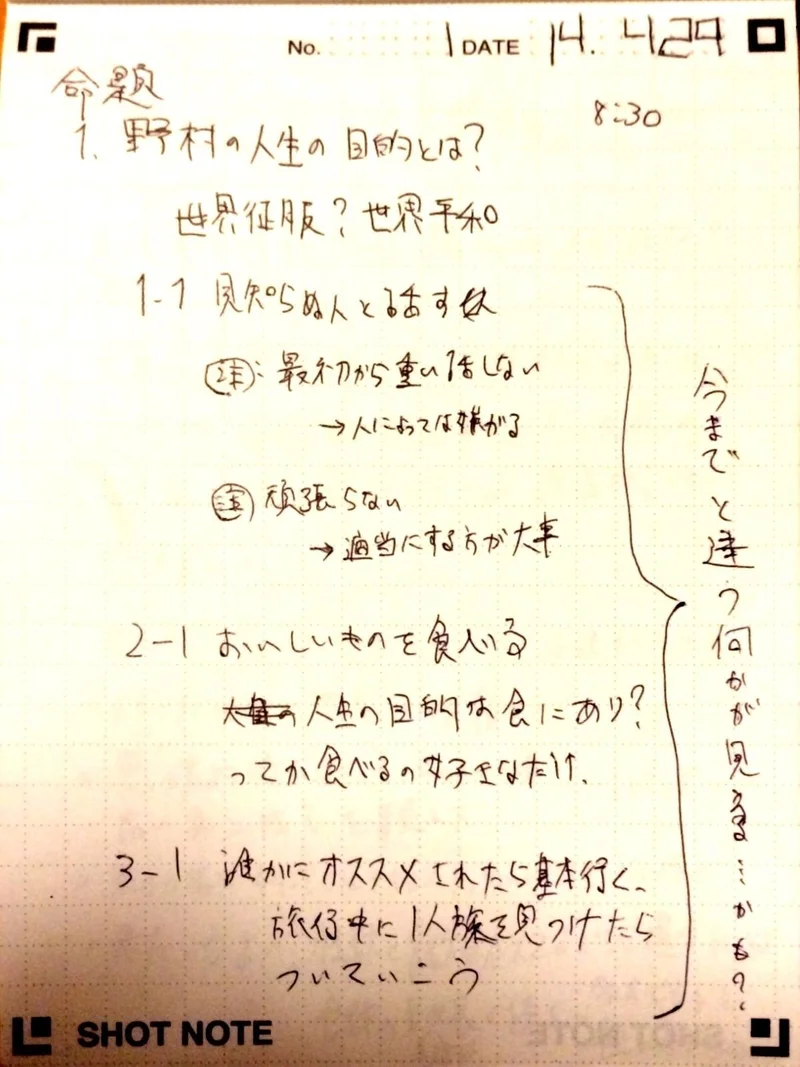 No. 1 DATE 14. 4.29
8:30
命題
1. 野村の人生の目的とは?
世界征服? 世界平和
1-1 見知らぬ人と話す
注: 最初から重い話しない
→人によっては嫌がる
頑張らない
→適当にする方が大事
2-1 おいしいものを食べる
人生の目的は食にあり?
ってか食べるの好きなだけ、
3-1 誰かにオススメされたら基本行く、
旅行中に1人旅を見つけたら
ついていこう
今までと違う何かが見える…かも?
SHOT NOTE